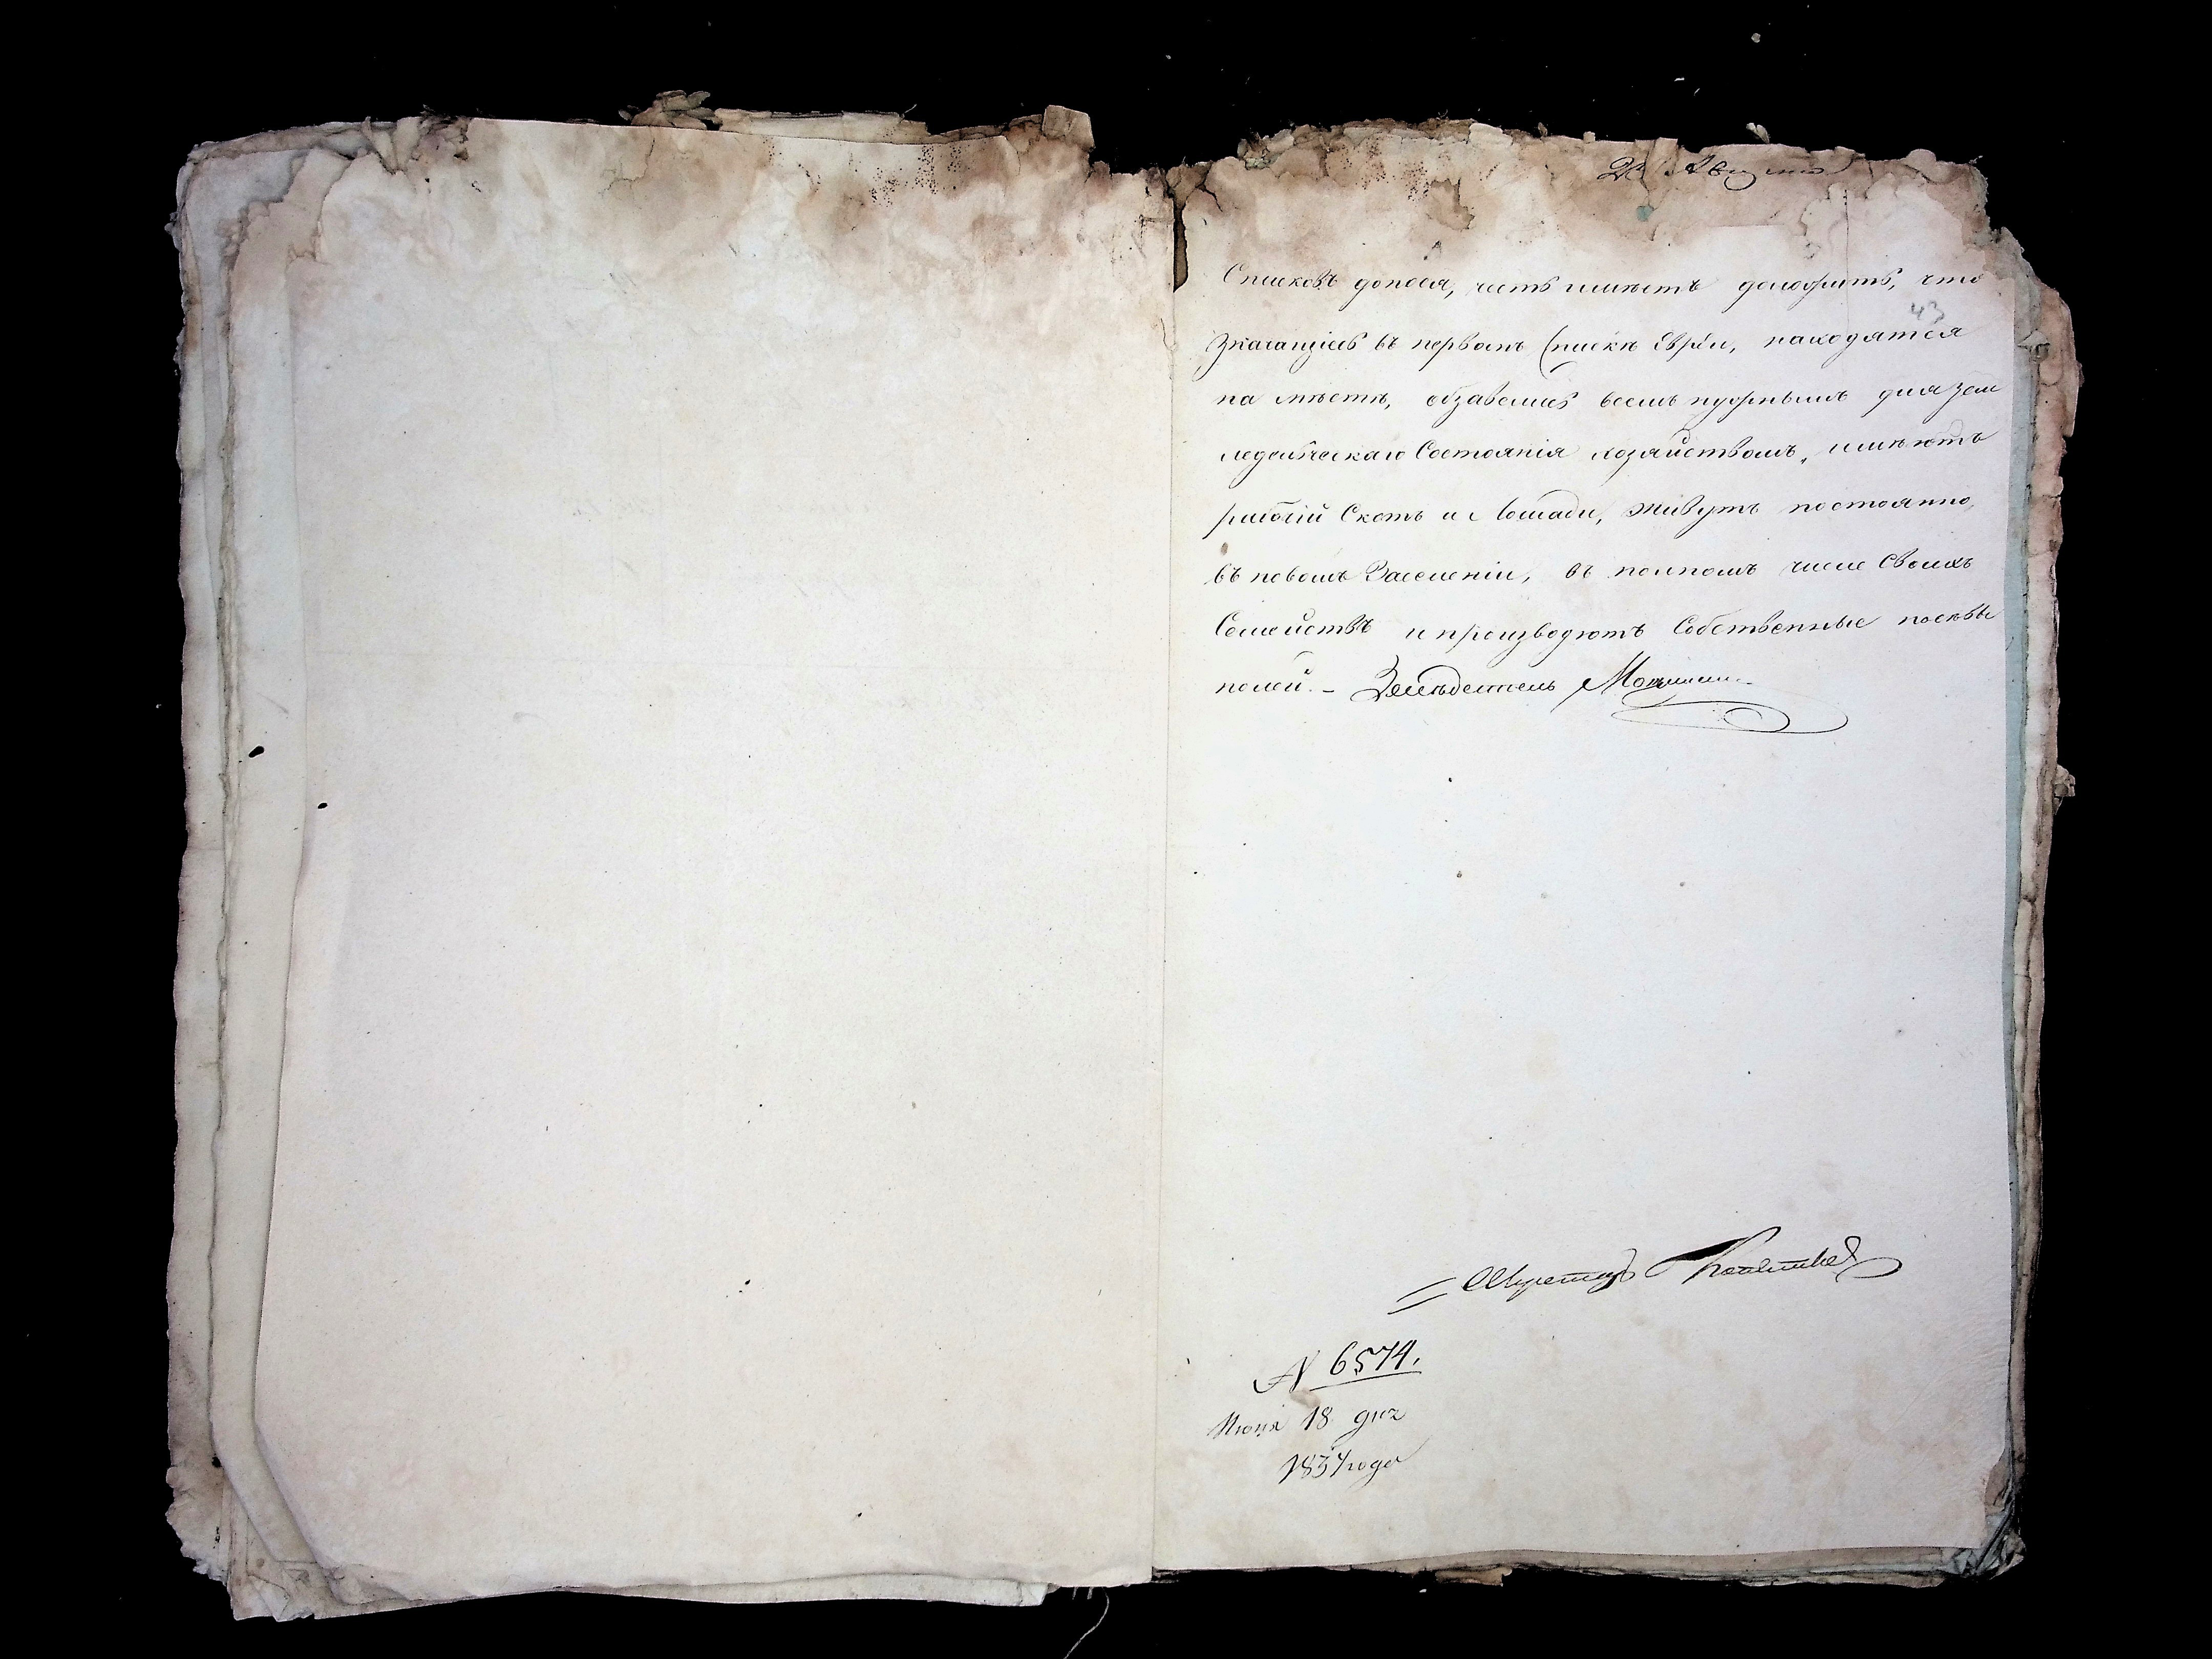 Августа
Списковъ донося, честь имѣетъ доложить, что
43
Значащіесь въ первомъ Спискѣ Евреи, находятся
на мѣстѣ, обзавелись всемъ нужнымъ для зем
ледельческаго Состоянія хозяйствомъ, имѣютъ
рабочій Скотъ и Лошади, живутъ постоянно,
въ новомъ Заселеніи, въ полномъ числе Своихъ
Семействъ и производютъ Собственные посѣвы
полей. –
N 6574.
Июня 18 дня
1837 года